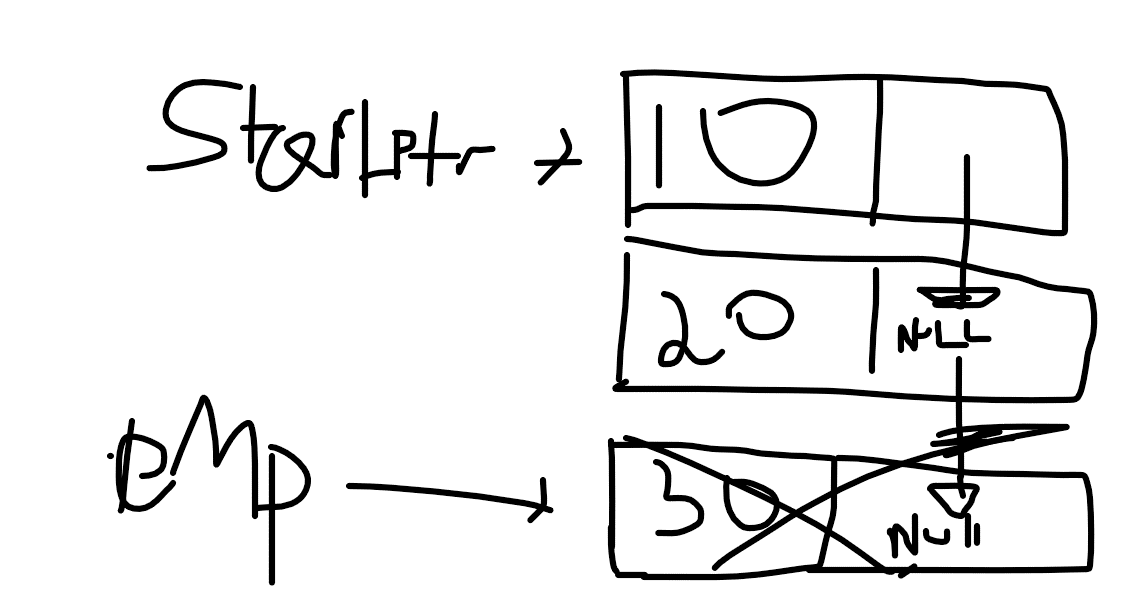 StartPtr → 10
20 NULL
eMp → 30 NUll